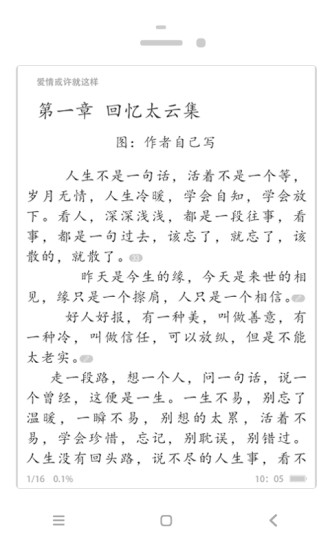 爱情或许就这样
第一章 回忆太云集
图：作者自己写
人生不是一句话，活着不是一个等，
岁月无情，人生冷暖，学会自知，学会放
下。看人，深深浅浅，都是一段往事，看
事，都是一句过去，该忘了，就忘了，该
散的，就散了。
昨天是今生的缘，今天是来世的相
见，缘只是一个擦肩，人只是一个相信。
好人好报，有一种美，叫做善意，有
一种冷，叫做信任，可以放纵，但是不能
太老实。
走一段路，想一个人，问一句话，说一
个曾经，这便是一生。一生不易，别忘了
温暖，一瞬不易，别想的太累，活着不
易，学会珍惜，忘记，别耽误，别错过。
人生没有回头路，说不尽的人生事，看不
1/16 0.1% 10：05